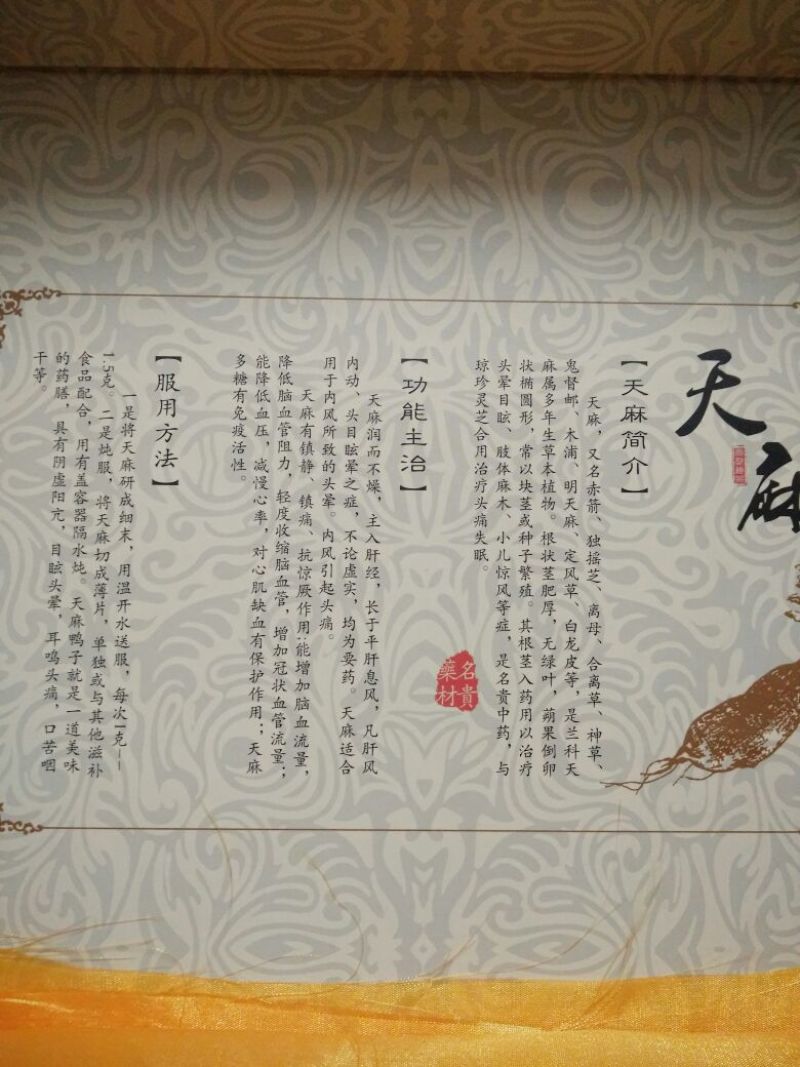 天麻
【天麻简介】
天麻，又名赤箭、独摇芝、离母、合离草、神草、
鬼督邮、木浦、明天麻、定风草、白龙皮等，是兰科天
麻属多年生草本植物。根状茎肥厚，无绿叶，蒴果倒卵
状椭圆形，常以块茎或种子繁殖。其根茎入药用以治疗
头晕目眩、肢体麻木、小儿惊风等症，是名贵中药，与
琼珍灵芝合用治疗头痛失眠。
名貴
藥材
【功能主治】
天麻润而不燥，主入肝经，长于平肝息风，凡肝风
内动、头目眩晕之症，不论虚实，均为要药。天麻适合
用于内风所致的头晕。内风引起头痛。
天麻有镇静、镇痛、抗惊厥作用;能增加脑血流量，
降低脑血管阻力，轻度收缩脑血管，增加冠状血管流量；
能降低血压，减慢心率，对心肌缺血有保护作用；天麻
多糖有免疫活性。
【服用方法】
一是将天麻研成细末，用温开水送服，每次1克--
1.5克。二是炖服，将天麻切成薄片，单独或与其他滋补
食品配合，用有盖容器隔水炖。天麻鸭子就是一道美味
的药膳，具有阴虚阳亢，目眩头晕，耳鸣头痛，口苦咽
干等。